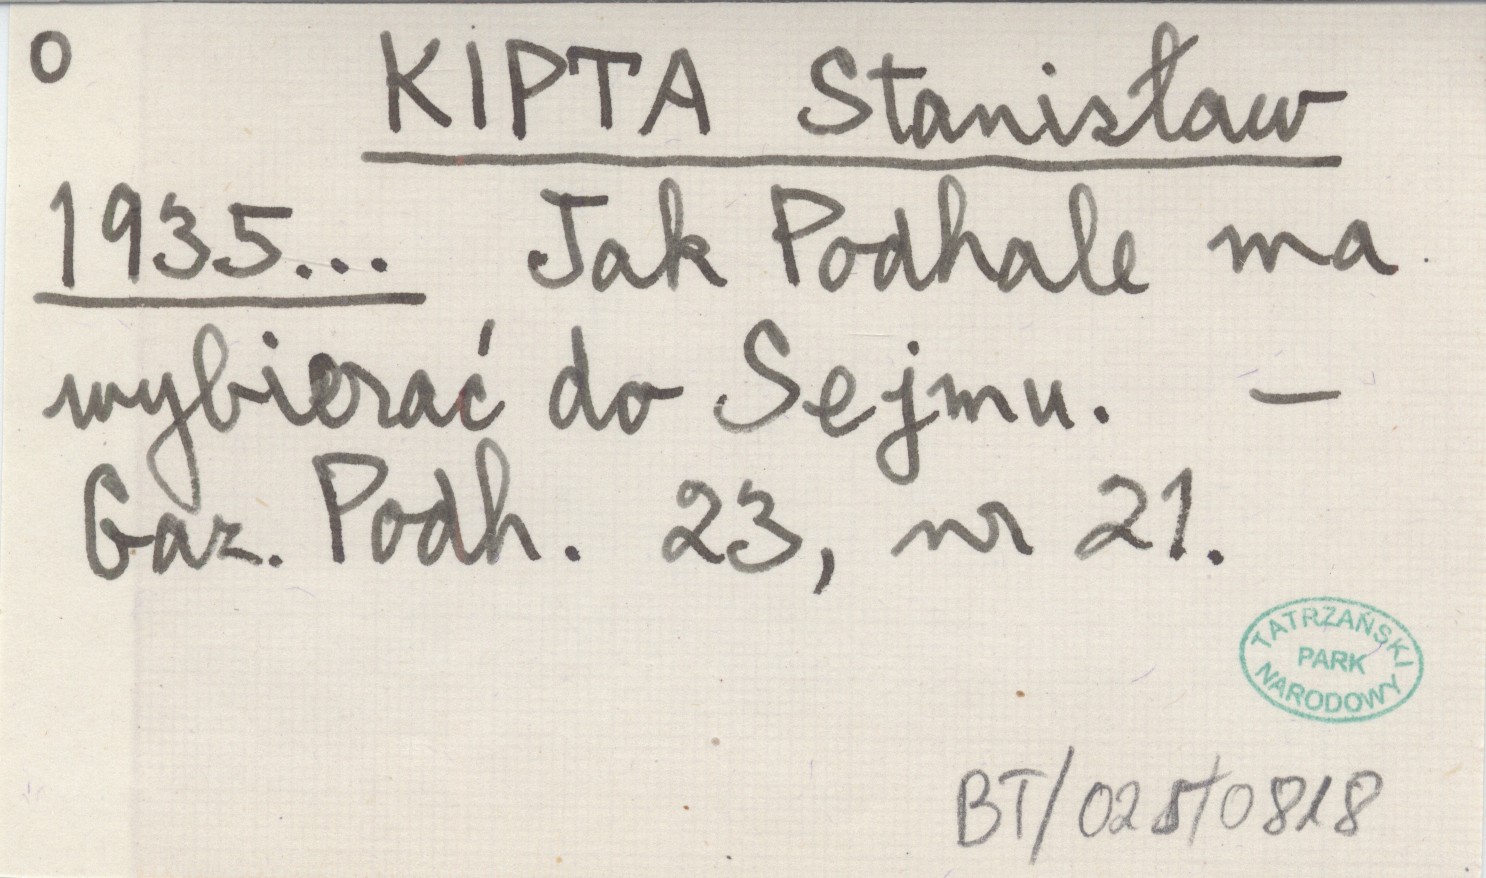 O
KIPTA Stanisław
1935... Jak Podhale ma
wybierać do Sejmu. —
Gaz. Podh. 23, nr 21.
TATRZAŃSKI
PARK
NARODOWY
BT/025/0818